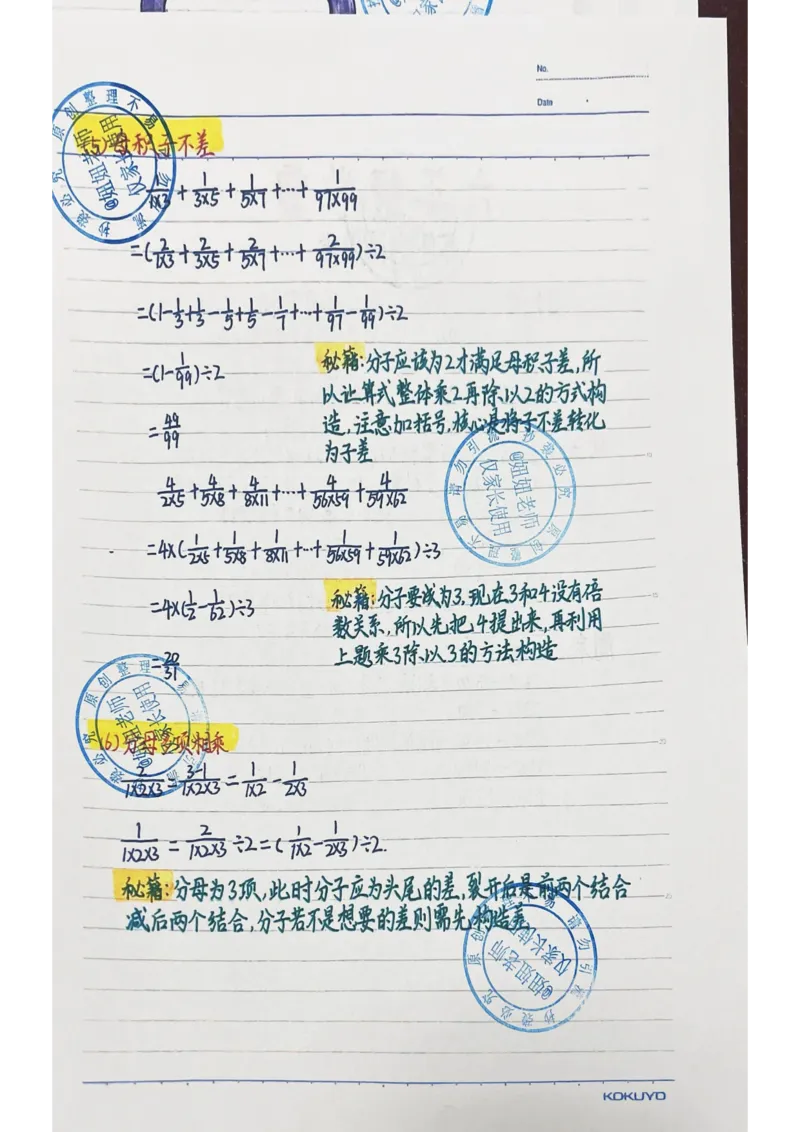 No.
Date
(5) 母积子不差
1/1×3 + 1/3×5 + 1/5×7 + ⋯ + 1/97×99
=(2/1×3 + 2/3×5 + 2/5×7 + ⋯ + 2/97×99)÷2
=(1-1/3+1/3-1/5+1/5-1/7+⋯+1/97-1/99)÷2
=(1-1/99)÷2
=49/99
秘籍:分子应该为2才满足母积子差,所
以让算式整体乘2再除以2的方式构
造,注意加括号,核心是将子不差转化
为子差
4/2×5 + 4/5×8 + 4/8×11 + ⋯ + 4/56×59 + 4/59×62
=4×(1/2×5 + 1/5×8 + 1/8×11 + ⋯ + 1/56×59 + 1/59×62)÷3
=4×(1/2-1/62)÷3
=20/31
秘籍:分子要成为3,现在3和4没有倍
数关系,所以先把4提出来,再利用
上题乘3除以3的方法构造
(6)分母多项相乘
2/1×2×3 = 3-1/1×2×3 = 1/1×2 - 1/2×3
1/1×2×3 = 2/1×2×3 ÷2=(1/1×2 - 1/2×3)÷2.
秘籍:分母为3项,此时分子应为头尾的差,裂开后是前两个结合
减后两个结合,分子若不是想要的差则需先构造差
@妞妞老师
仅家长使用
原创整理不易
请勿引流
抄袭必究
KOKUYO